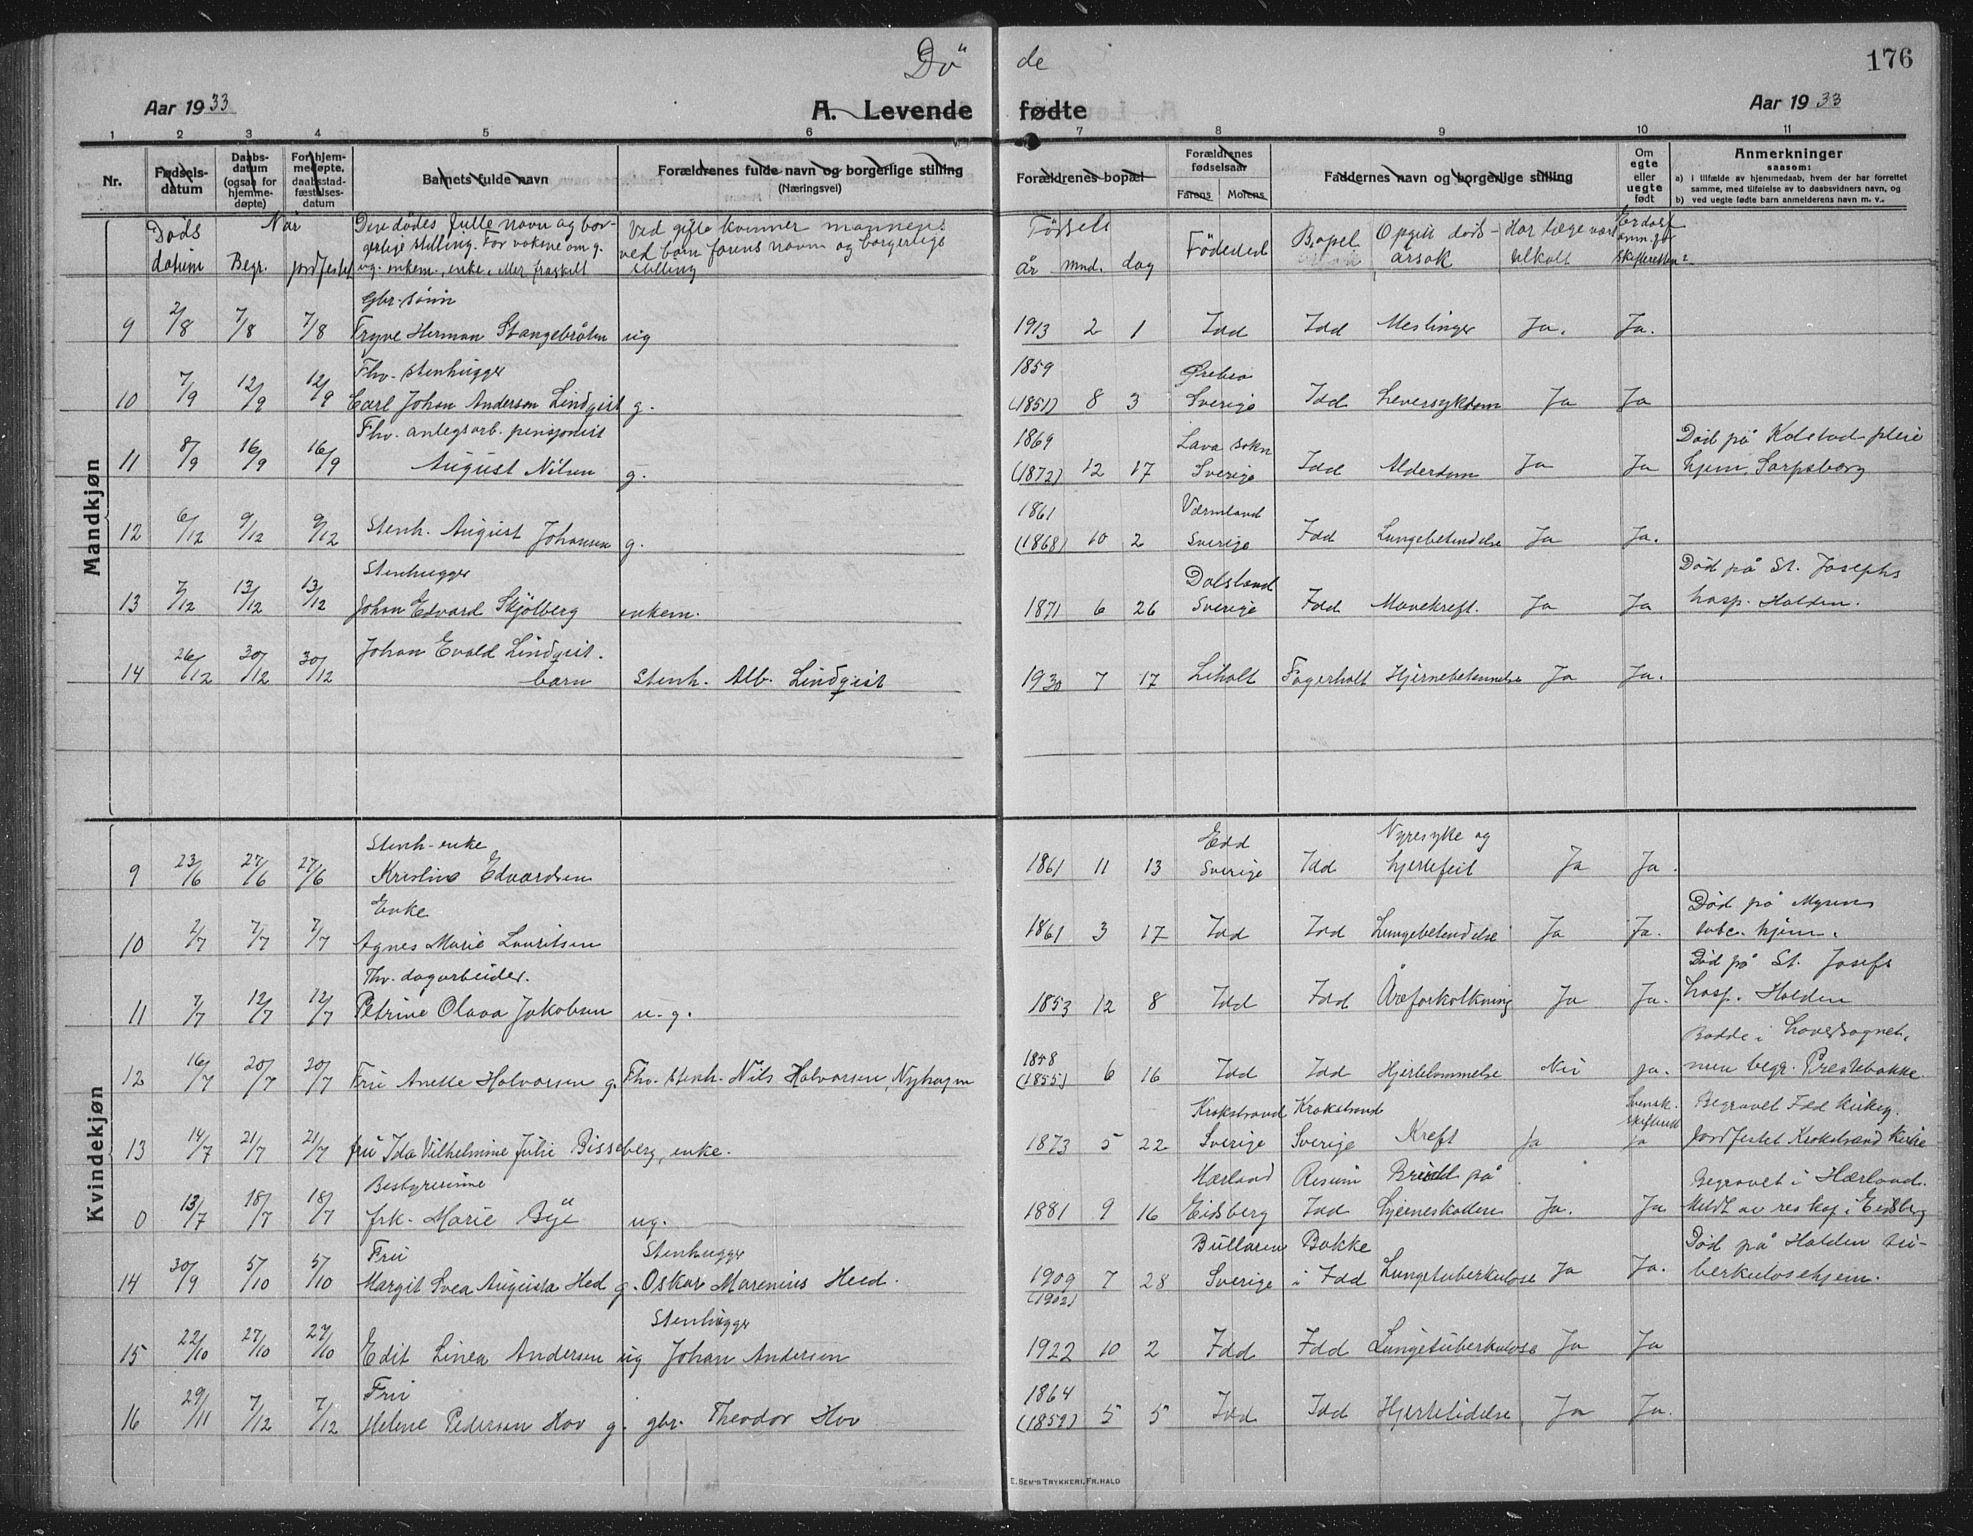 Dø" de
176
Aar 1933 A. Levende fødte Aar 1933
1 2 3 4 5 6 7 8 9 10 11
Nr.
Fødsels-
datum
Daabs-
datum
(ogsaa for
hjemme-
døpte)
For hjem-
medøpte,
daabsstad-
fæstelses-
datum
Barnets fulde navn
Forældrenes fulde navn og borgerlige stilling
(Næringsvei)
Forældrenes bopæl
Forældrenes
fødselsaar
Farens Morens
Faddernes navn og borgerlige stilling
Om
egte
eller
uegte
født
Anmerkninger
saasom:
a) i tilfælde av hjemmedaab, hvem der har forrettet
samme, med tilføielse av to daabsvidners navn, og
b) ved uegte fødte barn anmelderens navn m. v.,
Døds
datum
Når
Begr. jordfestet
Den dødes fulle navn og bor-
gerlige stilling. For voksne om g.
ug. enkem., enke. eller fraskilt
Ved gifte kvinner mannens
ved barn farens navn og borgerlige
stilling
Fødsels
år mnd. dag
Fødested
Bopel
Opgitt døds-
årsak
Har læge vært
tilkalt
Er dødsf.
anm. for
skifteretten?
Mandkjøn
Gbr. sønn
9 2/8 7/8 7/8 Trygve Herman Stangebråten ug 1913 2 1 Idd Idd Meslinger Ja. Ja.
Fhv. stenhugger 1859 Ørebro
10 7/9 12/9 12/9 Carl Johan Anderson Lindqvist g. (1851) 8 3 Sverige Idd Leversykdom Ja Ja
Fhv. anlegsarb. pensjonist 1869 Lava sokn Død på Kolstad pleie
11 8/9 16/9 16/9 August Nilsen g. (1872) 12 17 Sverige Idd Alderdom Ja Ja hjem, Sarpsborg
1861 Värmland
12 6/12 9/12 9/12 Stenh. August Johansen g. (1868) 10 2 Sverige Idd Lungebetendelse Ja Ja.
Stenhugger Dalsland Død på St. Josephs
13 7/12 13/12 13/12 Johan Edvard Skjølberg enkem. 1871 6 26 Sverige Idd Mavekreft. Ja Ja hosp. Halden.
Johan Evald Lindqvist.
14 26/12 30/12 30/12 barn Stenh. Alb. Lindqvist 1930 7 17 Liholt Fagerholt Hjernebetennelse Ja Ja.
Kvindekjøn
Stenh-enke Edd Nyresyke og
9 23/6 27/6 27/6 Kristine Edvardsen 1861 11 13 Sverige Idd hjertefeil Ja Ja.
Enke Død på Mysens
10 2/7 7/7 7/7 Agnes Marie Lauritsen 1861 3 17 Idd Idd Lungebetendelse Ja Ja. tubc. hjem.
Fhv. dagarbeider. Død på St. Josefs
11 7/7 12/7 12/7 Petrine Olava Jakobsen u. g. 1853 12 8 Idd Idd Åreforkalkning Ja Ja. hosp. Halden
1848 Bodde i hovedsognet,
12 16/7 20/7 20/7 Fru Anette Halvorsen g. Fhv. stenh. Nils Halvorsen, Nyhagen (1855) 6 16 Idd Idd Hjertelammelse Nei ja. men begr. Prestebakke.
Krokstrand Krokstrand Svensk. skifterett Begravet Idd kirkeg.
13 14/7 21/7 21/7 fru Ida Vilhelmine Julie Bisseberg, enke. 1873 5 22 Sverige Sverige Kreft Ja ja Jordfestet Krokstrand Kirke
Bestyrerinne Hærland Risum Brudd på Begravet i Hærland.
0 13/7 18/7 18/7 frk. Marie Bye ug. 1881 9 16 Eidsberg Idd hjerneskallen Ja. Ja Meldt av res kap. i Eidsberg
Fru Stenhugger Bullaren Bakke Død på Halden tu-
14 30/9 5/10 5/10 Margit Svea Augusta Hed g. Oskar Marenius Heed. 1909 7 28 Sverige i Idd Lungetuberkulose Ja Ja. berkulosehjem.
(1902)
Stenhugger
15 22/10 27/10 27/10 Edit Linea Andersen ug Johan Andersen 1922 10 2 Idd Idd Lungetuberkulose Ja Ja
Fru 1864
16 29/11 7/12 7/12 Helene Pedersen Hov g. gbr. Theodor Hov (1859) 5 5 Idd Idd Hjertelidelse, Ja Ja.
E. SEM'S TRYKKERI, FR.HALD